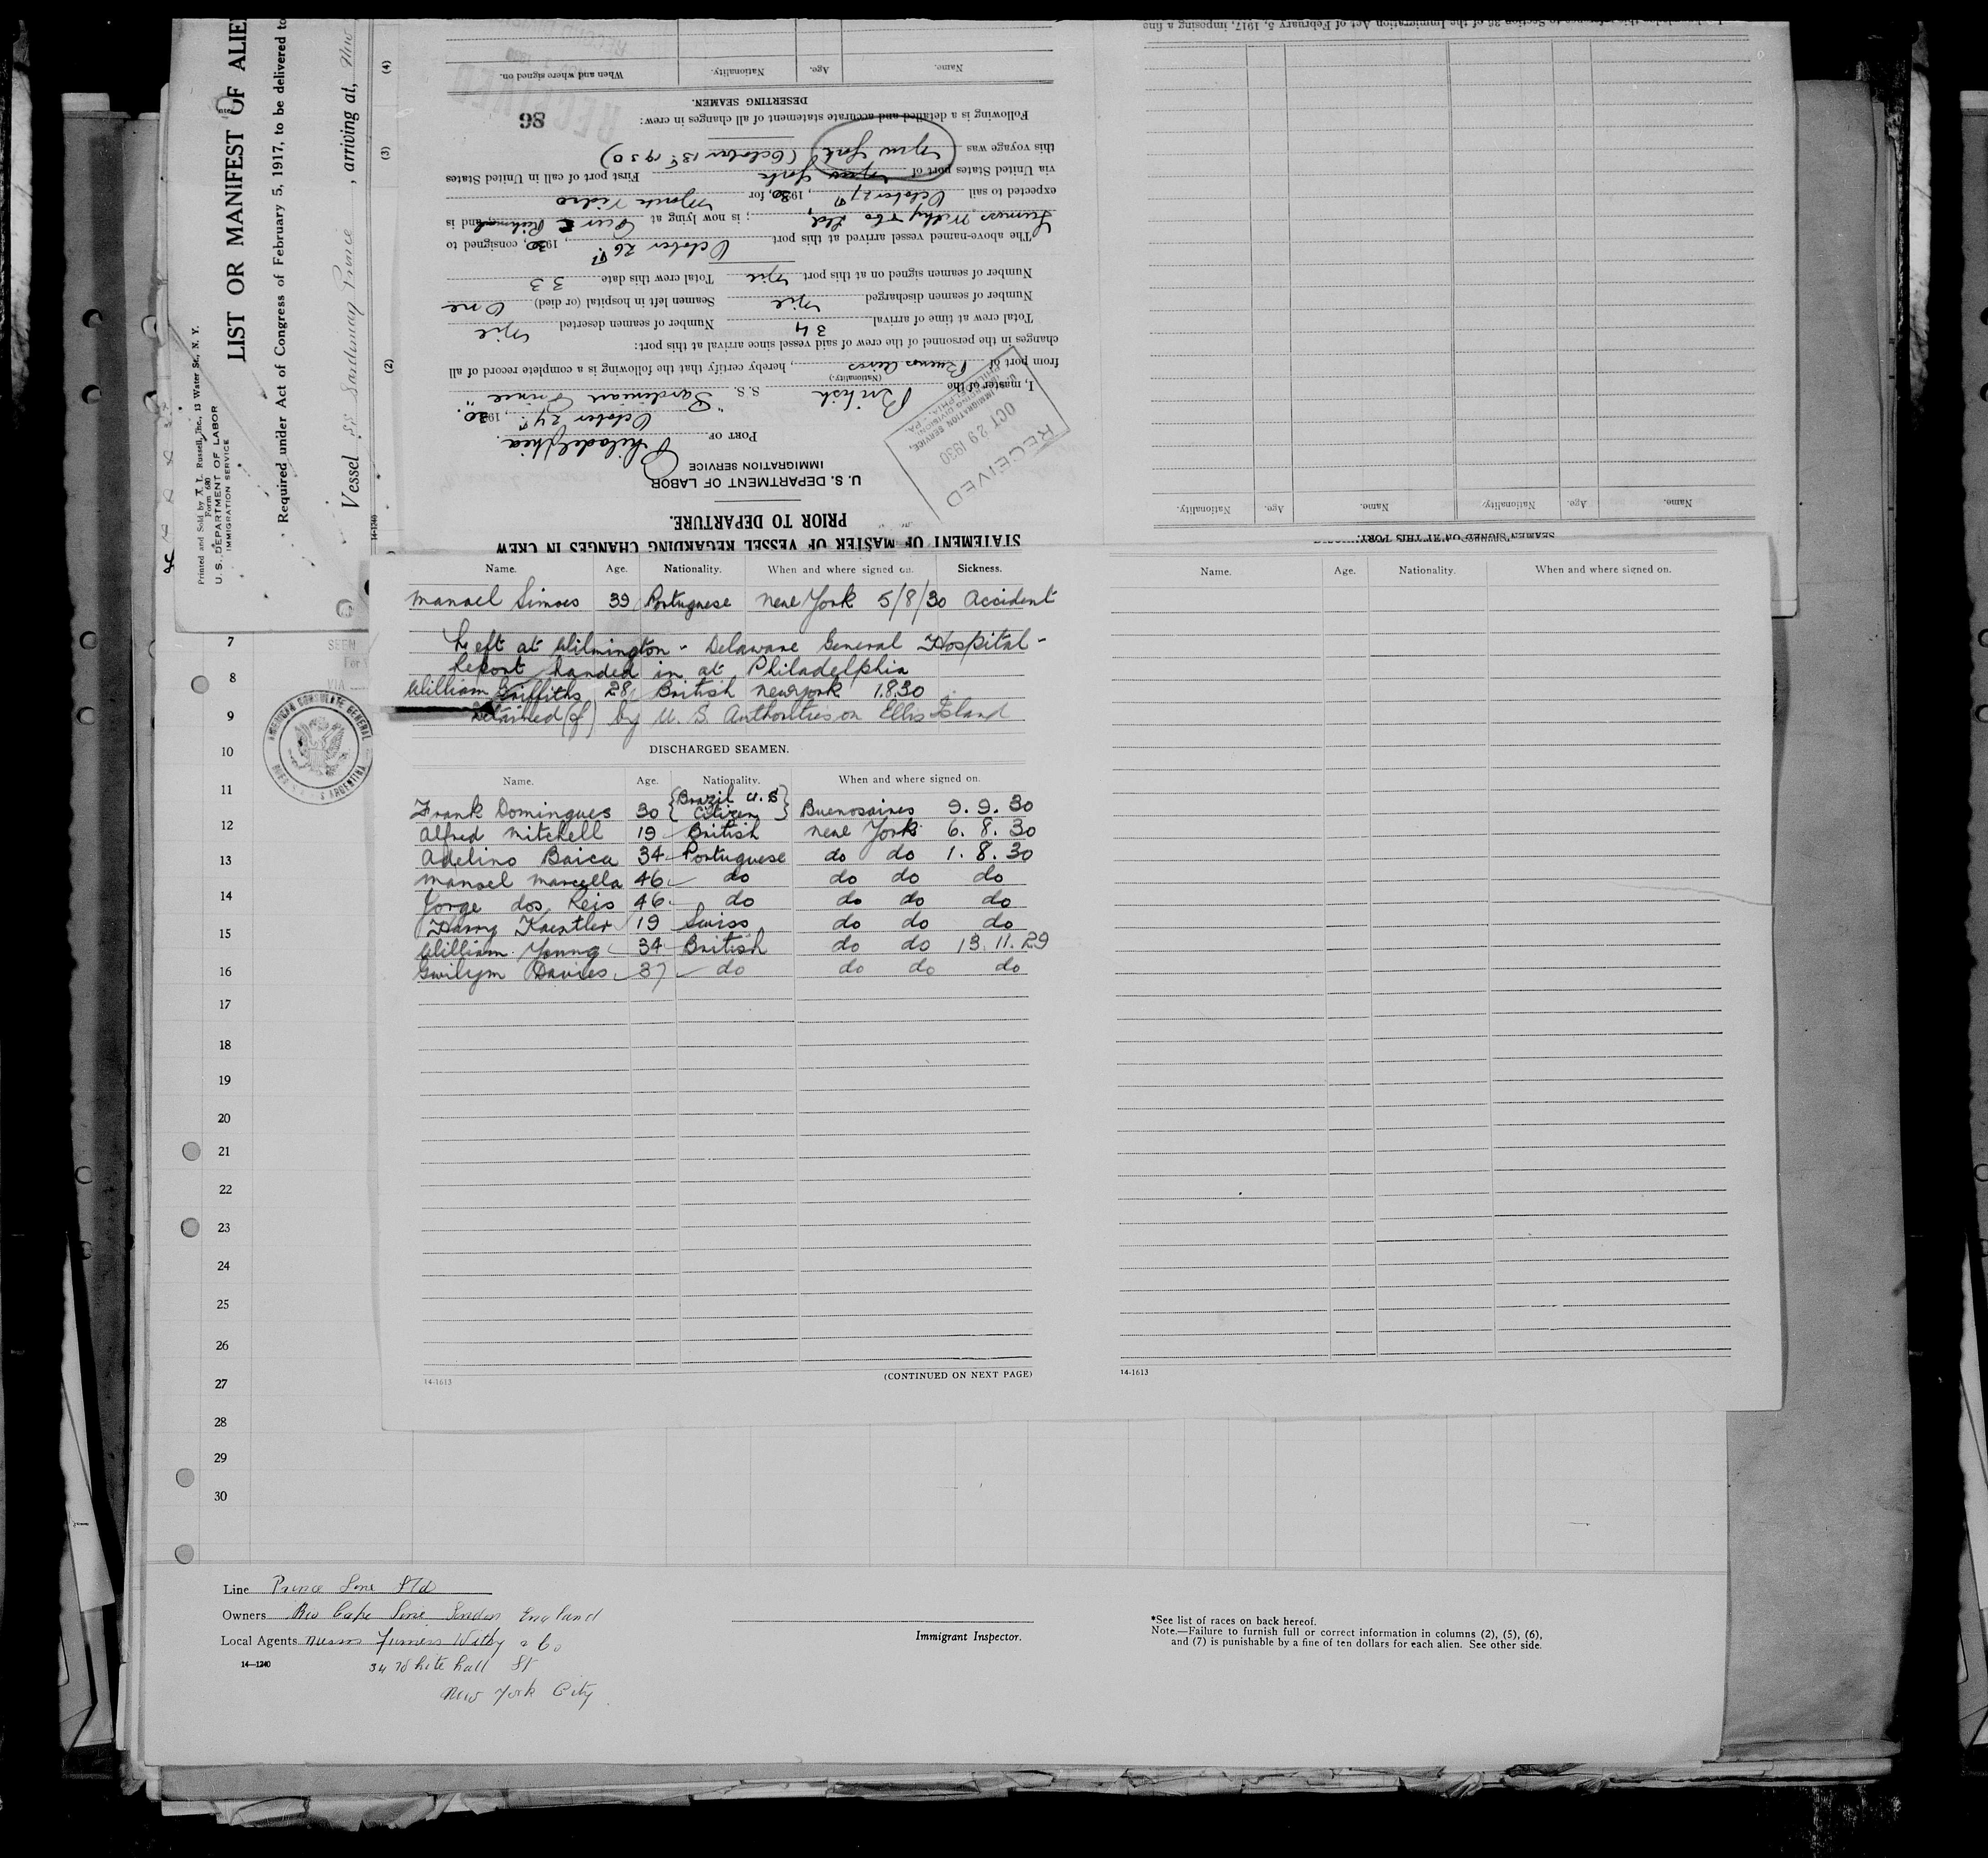 LIST OR MANIFEST OF ALIE
Required under Act of Congress of February 5, 1917, to be delivered to
Vessel SS Sardinian Prince, arriving at, New
Printed and Sold by Russell, Inc., 13 Water St., N. Y.
Form 680
U. S. DEPARTMENT OF LABOR
IMMIGRATION SERVICE
14-1240
(2)
(3)
(4)
STATEMENT OF MASTER OF VESSEL REGARDING CHANGES IN CREW
PRIOR TO DEPARTURE.
U. S. DEPARTMENT OF LABOR
IMMIGRATION SERVICE
RECEIVED
OCT 29 1930
IMMIGRATION SERVICE,
PORT OF Philadelphia.
October 27th, 1930.
I, master of the British S. S. "Sardinian Prince"
(Nationality.)
from port of Buenos Aires, hereby certify that the following is a complete record of all
changes in the personnel of the crew of said vessel since arrival at this port:
Total crew at time of arrival 34 Number of seamen deserted Nil
Number of seamen discharged Nil Seamen left in hospital (or died) One
Number of seamen signed on at this port Nil Total crew this date 33
The above-named vessel arrived at this port October 26th, 1930, consigned to
Furness Withy & Co Ltd; is now lying at Pier C Richmond, and is
expected to sail October 27th, 1930, for
via United States port of New York First port of call in United States
this voyage was New York (October 13th 1930)
Following is a detailed and accurate statement of all changes in crew:
86
RECEIVED
DESERTING SEAMEN.
Name. Age. Nationality. When and where signed on.
SEAMEN SIGNED ON AT THIS PORT.
Name. Age. Nationality. Name. Age. Nationality.
of the Immigration Act of February 5, 1917, imposing a fine
Name. Age. Nationality. When and where signed on. Sickness.
Manoel Simoes 39 Portuguese New York 5/8/30 Accident
Left at Wilmington - Delaware General Hospital -
Report handed in at Philadelphia
William Griffiths 28 British New york 1.8.30
Detained (of) by U. S. Authorities on Ellis Island
DISCHARGED SEAMEN.
Name. Age. Nationality. When and where signed on.
Frank Domingues 30 {Brazil U.S Citizen} Buenosaires 9. 9. 30
Alfred Mitchell 19 British New York 6. 8. 30
Adelino Baica 34 Portuguese do do 1. 8. 30
Manoel Marcella 46 do do do do
Jorge dos Reis 46 do do do do
Harry Kaestler 19 Swiss do do do
William Young 34 British do do 13. 11. 29
Gwilym Davies 37 do do do do
(CONTINUED ON NEXT PAGE)
14-1613
Name. Age. Nationality. When and where signed on.
14-1613
SEEN
VIA
AMERICAN CONSULATE GENERAL
ARGENTINA
7
8
9
10
11
12
13
14
15
16
17
18
19
20
21
22
23
24
25
26
27
28
29
30
Line Prince Line Ltd
Owners Rio Cape Line London England
Local Agents Messrs Furness Withy & Co
34 Whitehall St
New York City
14—1240
Immigrant Inspector.
*See list of races on back hereof.
Note.—Failure to furnish full or correct information in columns (2), (5), (6),
and (7) is punishable by a fine of ten dollars for each alien. See other side.